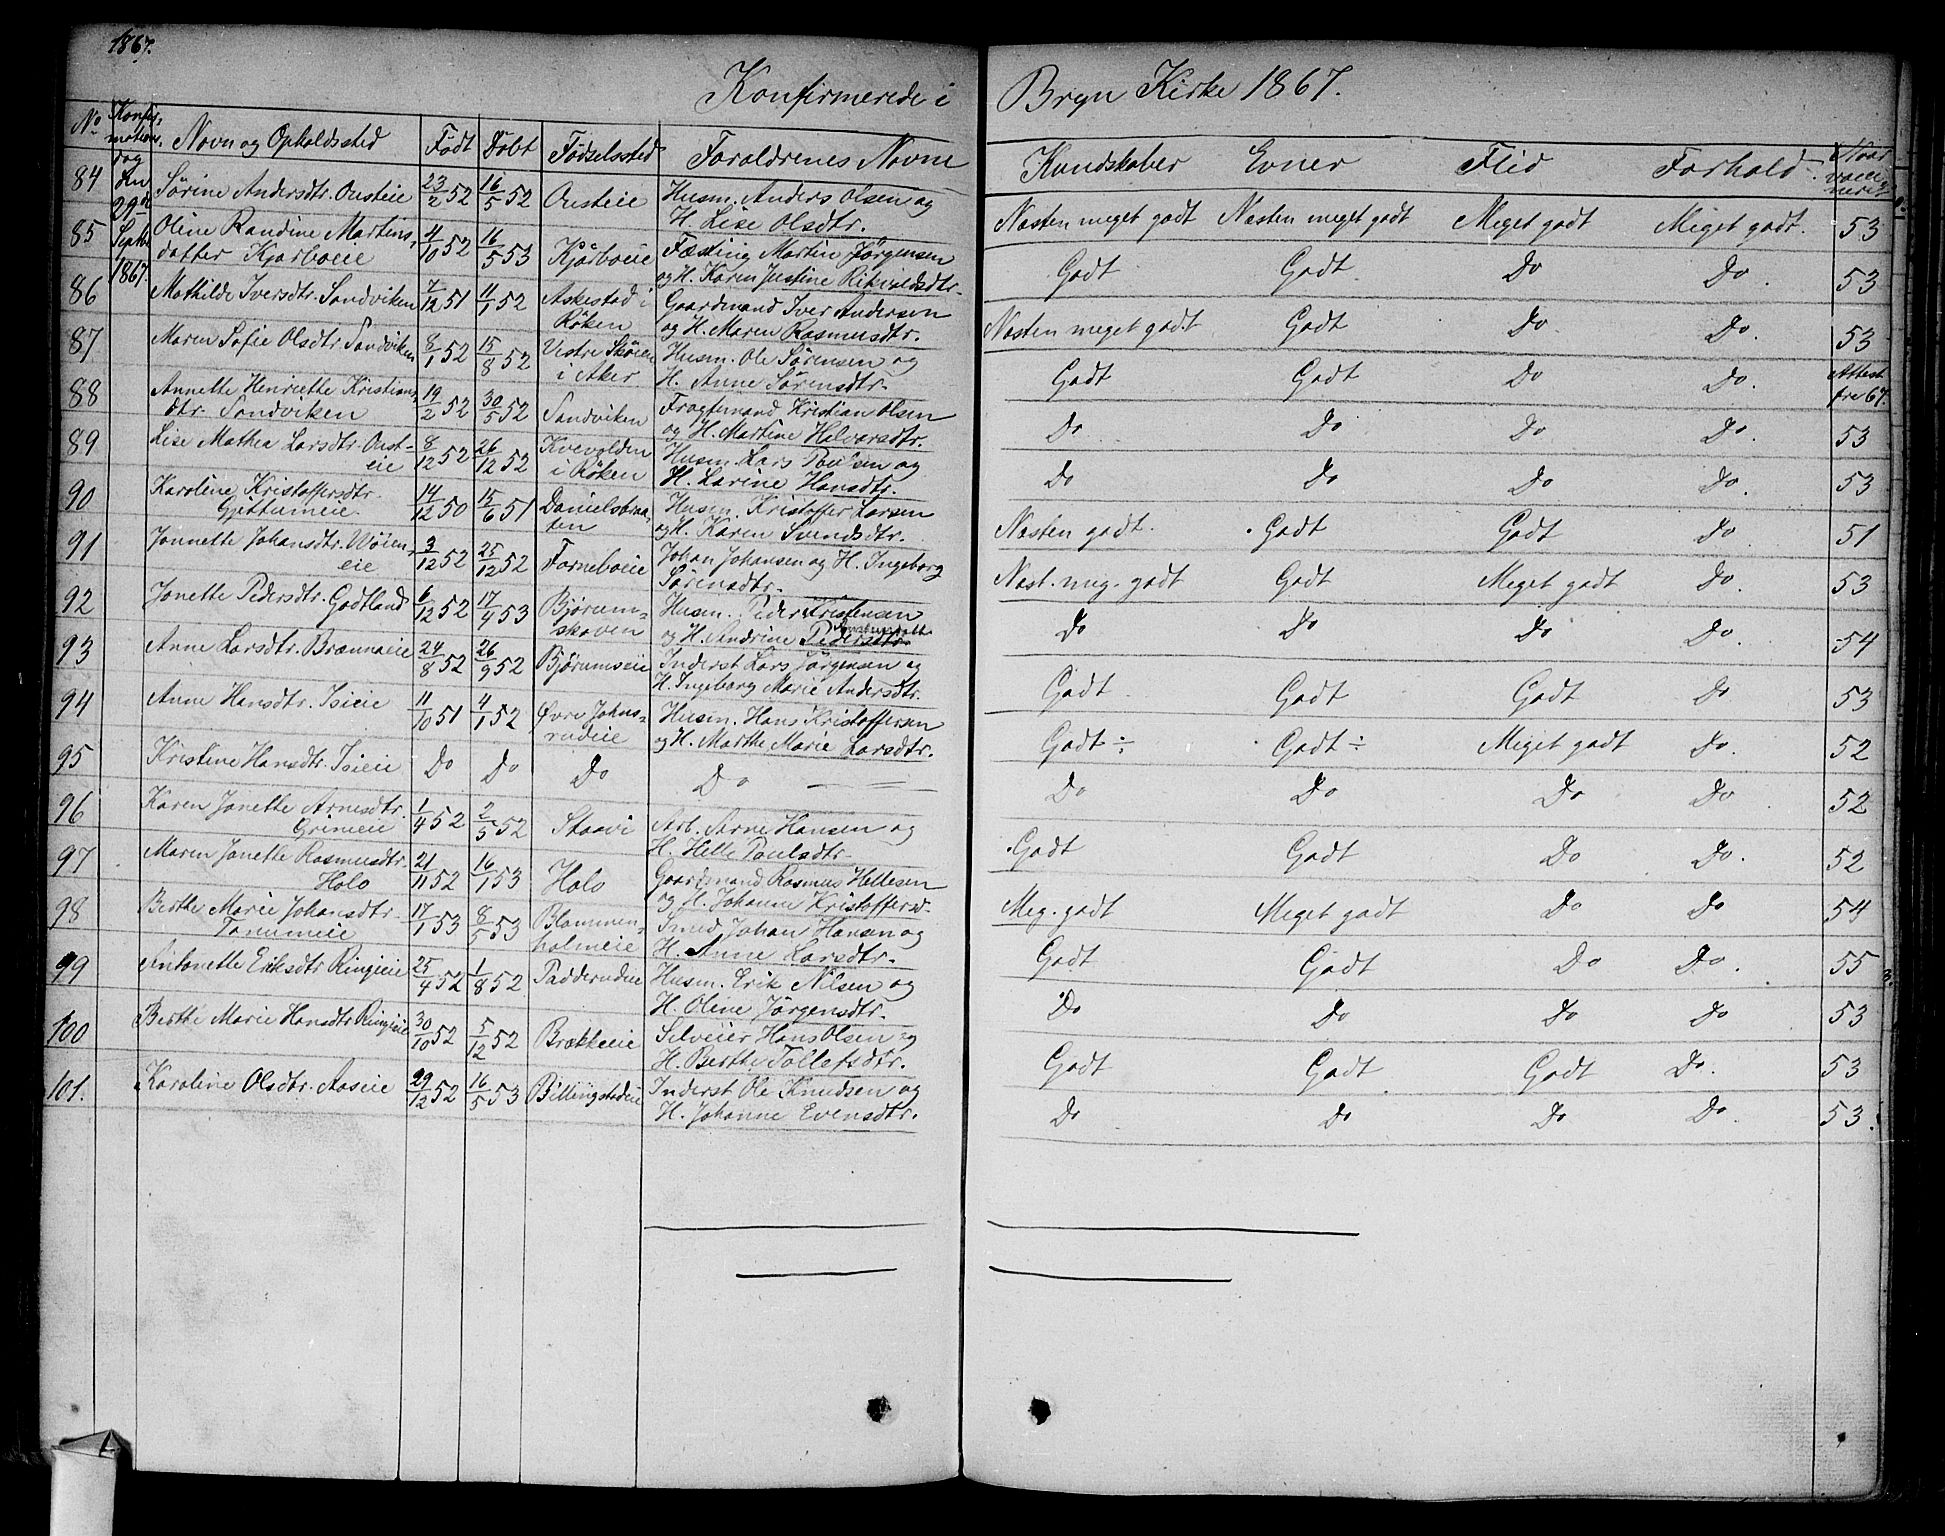 1867.
Konfirmerede i Bryn Kirke 1867.
No Konfirmations dag Navn og Opholdssted Født Døbt Fødselssted Forældrenes Navne Kundskaber Evner Flid Forhold Naar vaccineret
Den 29de Septbr. 1867.
84 Sørine Andersdtr. Ousteie 23/2 52 16/5 52 Ousteie Husm. Anders Olsen og Næsten meget godt Næsten meget godt Meget godt Meget godt. 53
H. Lise Olsdtr.
85 Oline Randine Martins, 4/10 52 16/5 53 Kjørboeie Fæsting Martin Jørgensen Godt Godt Do Do. 53
datter Kjørboeie og H. Karen Justine Rikvoldsdtr.
86 Mathilde Iversdtr. Sandviken 7/12 51 11/1 52 Askestad i Gaardmand Iver Andersen Næsten meget godt Godt Do Do. 53
Røken og H. Maren Rasmusdtr.
87 Maren Sofie Olsdtr. Sandviken 8/1 52 15/8 52 Vestre Skøien Husm. Ole Sørensen og Godt Godt Do Do. Attest
i Aker H. Anne Sørensdtr. fra 67.
88 Annette Henriette Kristians, 19/2 52 30/5 52 Sandviken Fragtemand Kristian Olsen Do Do Do Do. 53
dtr. Sandviken og H. Martine Halvorsdtr.
89 Lise Mathea Larsdtr. Oust- 8/12 52 26/12 52 Kvevolden Husm. Lars Poulsen og Do Do Do Do. 53
eie i Røken H. Larine Hansdtr.
90 Karoline Kristoffersdtr. 14/12 50 15/6 51 Danielsbraa- Husm. Kristoffer Larsen Næsten godt. Godt Godt Do 51
Gjettumeie. ten og H. Karen Svendsdtr.
91 Jonnette Johansdtr. Wøien, 3/12 52 25/12 52 Forneboeie Johan Johansen og H. Ingeborg Næst. meg. godt Godt Meget godt Do. 53
eie Sørensdtr.
92 Jonette Pedersdtr. Godtland 6/12 52 17/4 53 Bjørum- Husm. Peder Kristensen Do Do Do Do. 54
skoven og H. Andrine Pedersdtr.
93 Anne Larsdtr. Brænnaeie 24/8 52 26/9 52 Bjørumseie Inderst Lars Jørgensen og Godt Godt Godt Do 53
H. Ingeborg Marie Andersdtr.
94 Anne Hansdtr. Isieie 11/10 51 4/1 52 Øvre Johns- Husm. Hans Kristoffersen Godt ÷ Godt ÷ Meget godt Do. 52
rudeie og H. Marthe Marie Larsdtr.
95 Kristine Hansdtr. Isieie Do Do Do Do Do Do Do Do. 52
96 Karen Jonette Arnesdtr. 1/4 52 2/5 52 Staavi Arb. Arne Hansen og Godt Godt Do Do. 52
Grinieie H. Helle Poulsdtr.
97 Maren Jonette Rasmusdtr. 21/11 52 16/1 53 Holo Gaardmand Rasmus Hellesen Meg. godt Meget godt Do Do 54
Holo og H. Johanne Kristoffersd.
98 Berthe Marie Johansdtr. 17/1 53 8/5 53 Blommen- Smed Johan Hansen og Godt Godt Do Do. 55
Tanumeie holmeie H. Anne Larsdtr.
99 Antonette Eriksdtr Ringieie 25/4 52 1/8 52 Padderudeie Husm. Erik Nilsen og Do Do Do Do 53
H. Oline Jørgensdtr.
100 Berthe Marie Hansdtr Ringieie 30/10 52 5/12 52 Brækkeeie Selveier Hans Olsen og Godt Godt Godt Do. 53
H. Berthe Tollefsdtr.
101. Karoline Olsdtr. Aaseie 29/12 52 16/5 53 Billingstadeie Inderst Ole Knudsen og Do Do Do Do. 53.
H. Johanne Evensdtr.